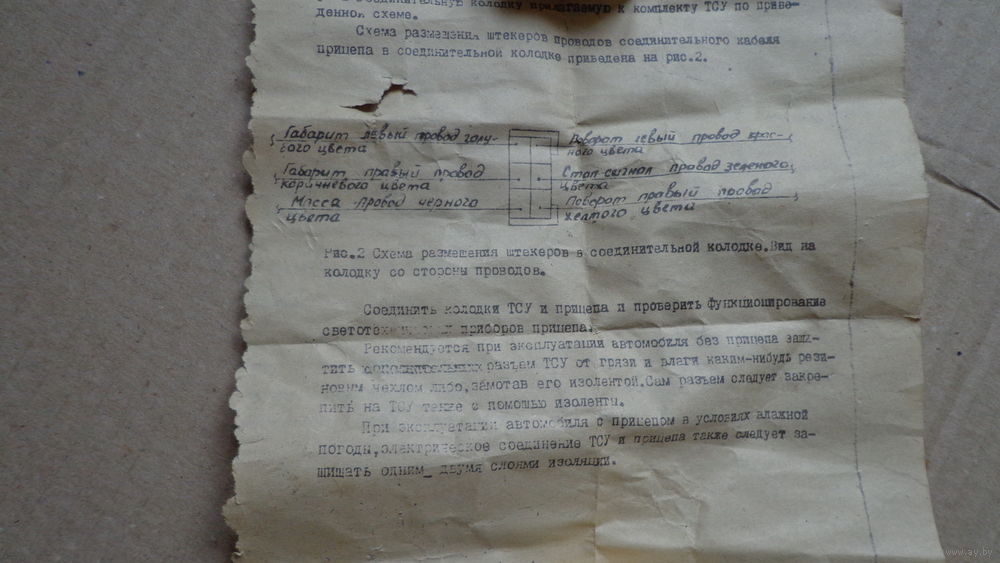 соединительную колодку прилагаемую к комплекту ТСУ по приве-
денной схеме.
Схема размещения штекеров проводов соединительного кабеля
прицепа в соединительной колодке приведена на рис.2.
Габарит левый провод голу-
бого цвета
Поворот левый провод крас-
ного цвета
Габарит правый провод
коричневого цвета
Стоп-сигнал провод зеленого
цвета
Масса провод черного
цвета
Поворот правый провод
желтого цвета
Рис.2 Схема размещения штекеров в соединительной колодке.Вид на
колодку со стороны проводов.
Соединить колодки ТСУ и прицепа и проверить функционирование
приборов прицепа.
Рекомендуется при эксплуатации автомобиля без прицепа защи-
тить разъем ТСУ от грязи и влаги каким-нибудь рези-
новым чехлом либо,замотав его изолентой.Сам разъем следует закре-
пить на ТСУ также с помощью изоленты.
При эксплуатации автомобиля с прицепом в условиях влажной
погоды,электрическое соединение ТСУ и прицепа также следует за-
щищать одним_ двумя слоями изоляции.
www.ay.by